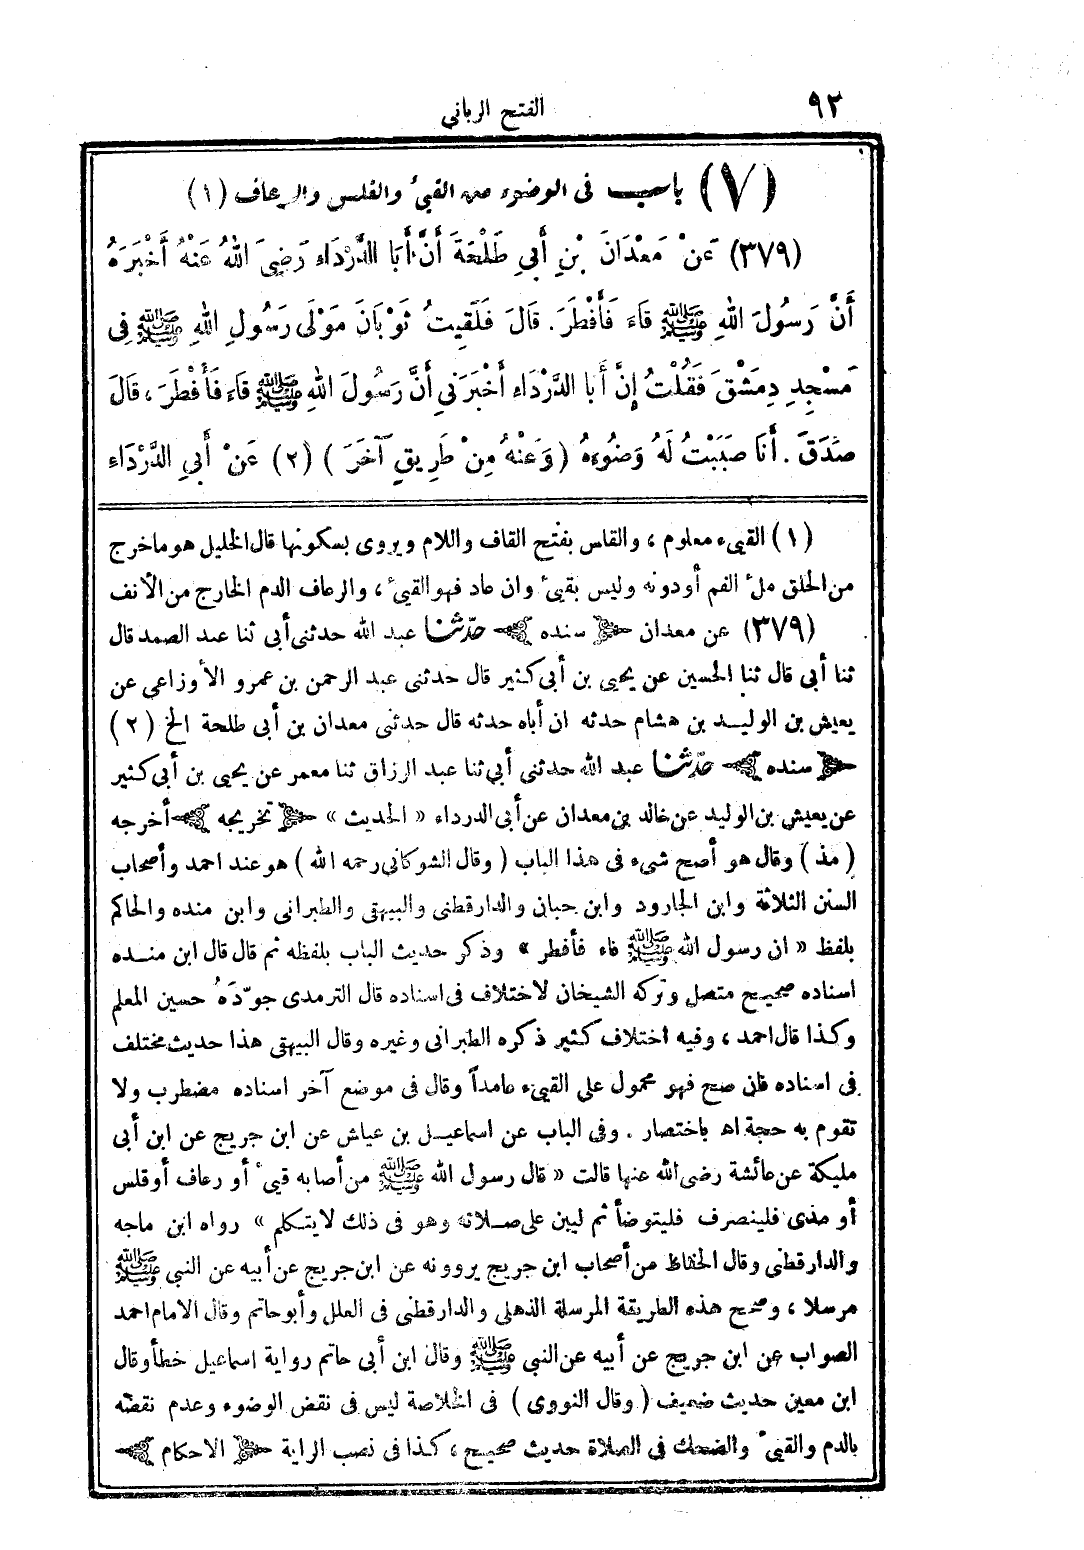 ٩٢
الفتح الرباني
(٧) باب فى الوضوء من القيء والقلس والرعاف (١)
(٣٧٩) عَنْ مَعْدَانَ بْنِ أَبِي طَلْحَةَ أَنَّ أَبَا الدَّرْدَاءِ رَضِيَ اللهُ عَنْهُ أَخْبَرَهُ
أَنَّ رَسُولَ اللهِ ﷺ قَاءَ فَأَفْطَرَ. قَالَ فَلَقِيتُ ثَوْبَانَ مَوْلَى رَسُولِ اللهِ ﷺ فِي
مَسْجِدِ دِمَشْقَ فَقُلْتُ إِنَّ أَبَا الدَّرْدَاءِ أَخْبَرَنِي أَنَّ رَسُولَ اللهِ ﷺ قَاءَ فَأَفْطَرَ، قَالَ
صَدَقَ. أَنَا صَبَبْتُ لَهُ وَضُوءَهُ (وَعَنْهُ مِنْ طَرِيقٍ آخَرَ) (٢) عَنْ أَبِي الدَّرْدَاءِ
(١) القيء معلوم، والقلس بفتح القاف واللام ويروى بسكونها قال الخليل هو ماخرج
من الحلق ملأ الفم أو دونه وليس بقيء وان عاد فهو القيء، والرعاف الدم الخارج من الأنف
(٣٧٩) عن معدان ﴿سنده﴾ حدّثنا عبد الله حدثنى أبى ثنا عبد الصمد قال
ثنا أبى قال ثنا الحسين عن يحيى بن أبى كثير قال حدثنى عبد الرحمن بن عمرو الأوزاعي عن
يعيش بن الوليد بن هشام حدثه ان أباه حدثه قال حدثنى معدان بن أبى طلحة الخ (٢)
﴿سنده﴾ حدّثنا عبد الله حدثنى أبي ثنا عبد الرزاق ثنا معمر عن يحيى بن أبى كثير
عن يعيش بن الوليد عن خالد بن معدان عن أبى الدرداء « الحديث » ﴿تخريجه﴾ أخرجه
(مذ) وقال هو أصح شىء فى هذا الباب (وقال الشوكاني رحمه الله) هو عند احمد وأصحاب
السنن الثلاثة وابن الجارود وابن حبان والدارقطنى والبيهقى والطبرانى وابن منده والحاكم
بلفظ « ان رسول الله ﷺ قاء فأفطر » وذكر حديث الباب بلفظه ثم قال قال ابن منده
اسناده صحيح متصل وتركه الشيخان لاختلاف فى اسناده قال الترمذى جوّدَهُ حسين المعلم
وكذا قال احمد، وفيه اختلاف كثير ذكره الطبرانى وغيره وقال البيهقى هذا حديث مختلف
فى اسناده فان صح فهو محمول على القيء عامداً وقال فى موضع آخر اسناده مضطرب ولا
تقوم به حجة اه باختصار. وفى الباب عن اسماعيل بن عياش عن ابن جريج عن ابن أبى
مليكة عن عائشة رضى الله عنها قالت « قال رسول الله ﷺ من أصابه قيء أو رعاف أو قلس
أو مذى فلينصرف فليتوضأ ثم ليبن على صلاته وهو فى ذلك لا يتكلم » رواه ابن ماجه
والدارقطنى وقال الحفاظ من أصحاب ابن جريج يروونه عن ابن جريج عن أبيه عن النبى ﷺ
مرسلا، وصحح هذه الطريقة المرسلة الذهلى والدارقطنى فى العلل وأبو حاتم وقال الامام احمد
الصواب عن ابن جريج عن أبيه عن النبى ﷺ وقال ابن أبى حاتم رواية اسماعيل خطأ وقال
ابن معين حديث ضعيف (وقال النووى) فى الخلاصة ليس فى نقض الوضوء وعدم نقضه
بالدم والقيء والضحك فى الصلاة حديث صحيح، كذا فى نصب الراية ﴿الاحكام﴾